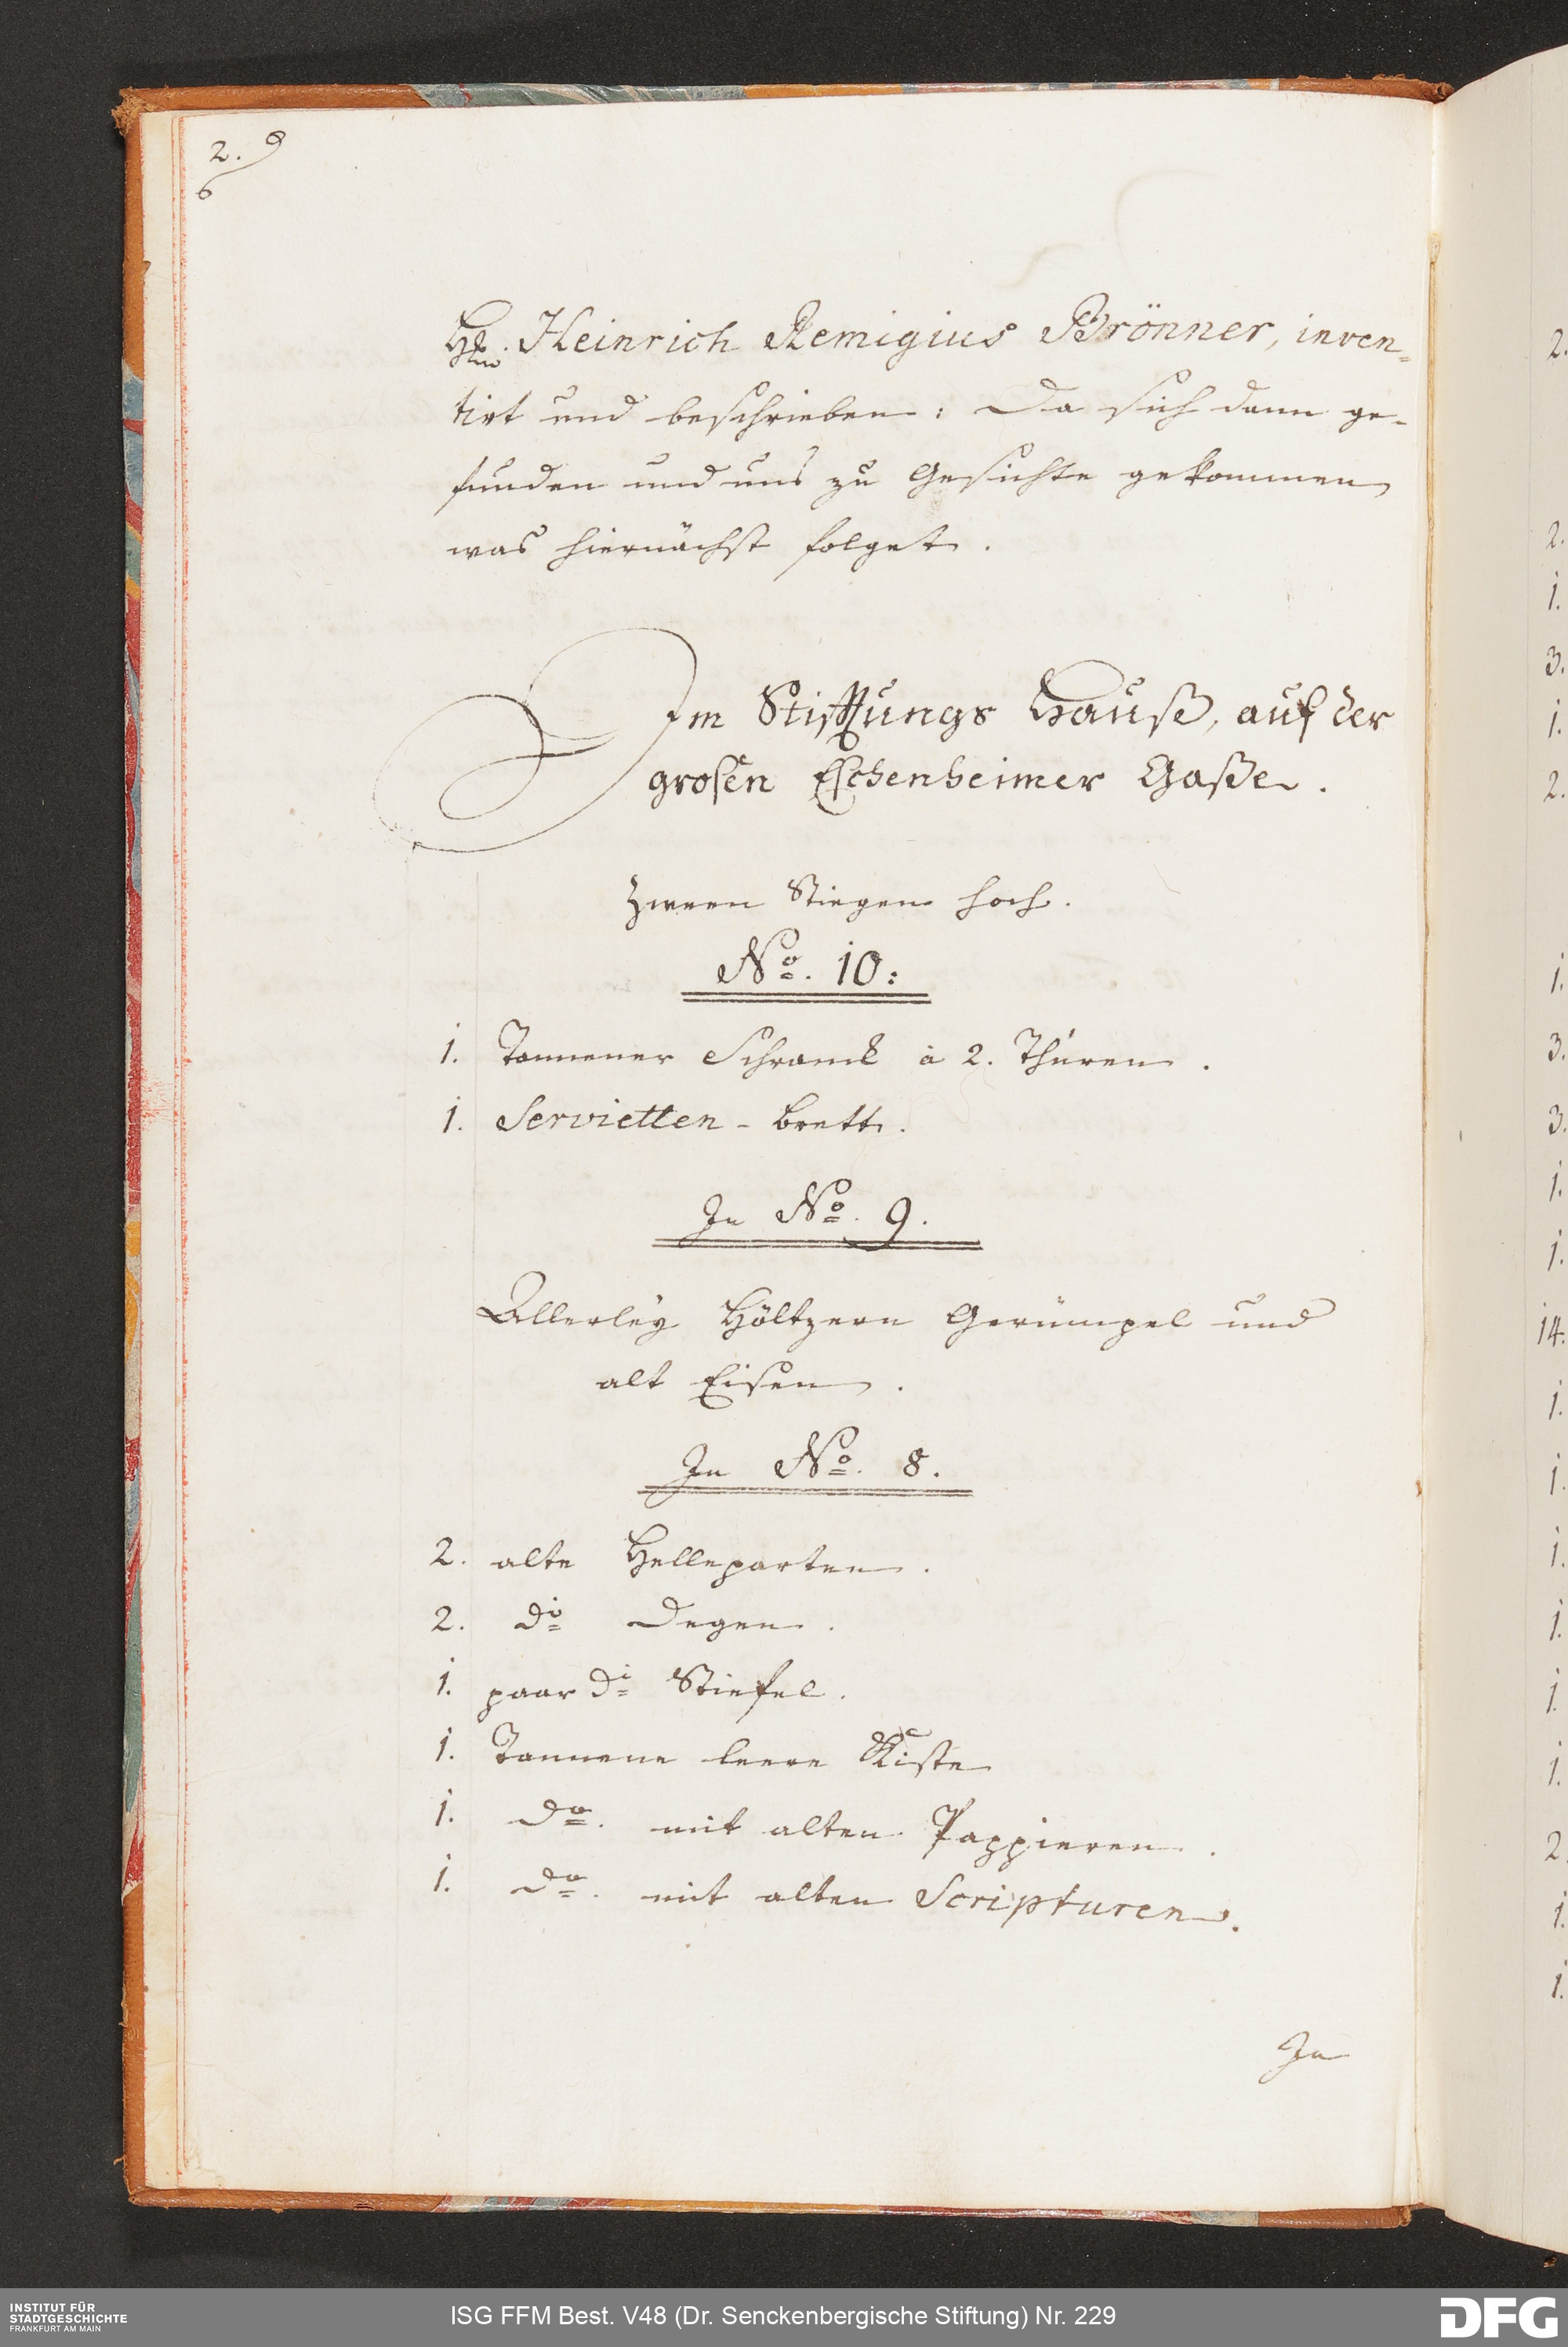 2.
Heinrich Remigius Brönner, inven=
tirt und beschrieben: Da sich dann ge-
funden und uns zu Gesichte gekommen
was hiernächst folget.
Im Stifftungs Hauß, auf der
grosen Eschenheimer Gaße.
Zween Stiegen hoch.
No. 10:
1. Tannener Schranck à 2. Thüren.
1. Servietten - brett.
In No. 9.
Allerley Höltzern Gerümpel und
alt Eisen.
In No. 8.
2. alte Helleparten.
2. do Degen.
1. paar do Stiefel.
1. Tannene leere Kiste
1. do. mit alten Pappieren.
1. do. mit alten Scripturen.
In
2.
2.
1.
3.
1.
2.
1.
3.
3.
1.
1.
14.
1.
1.
1.
1.
1.
1.
2
1.
1.
INSTITUT FÜR
STADTGESCHICHTE
FRANKFURT AM MAIN
ISG FFM Best. V48 (Dr. Senckenbergische Stiftung) Nr. 229
DFG